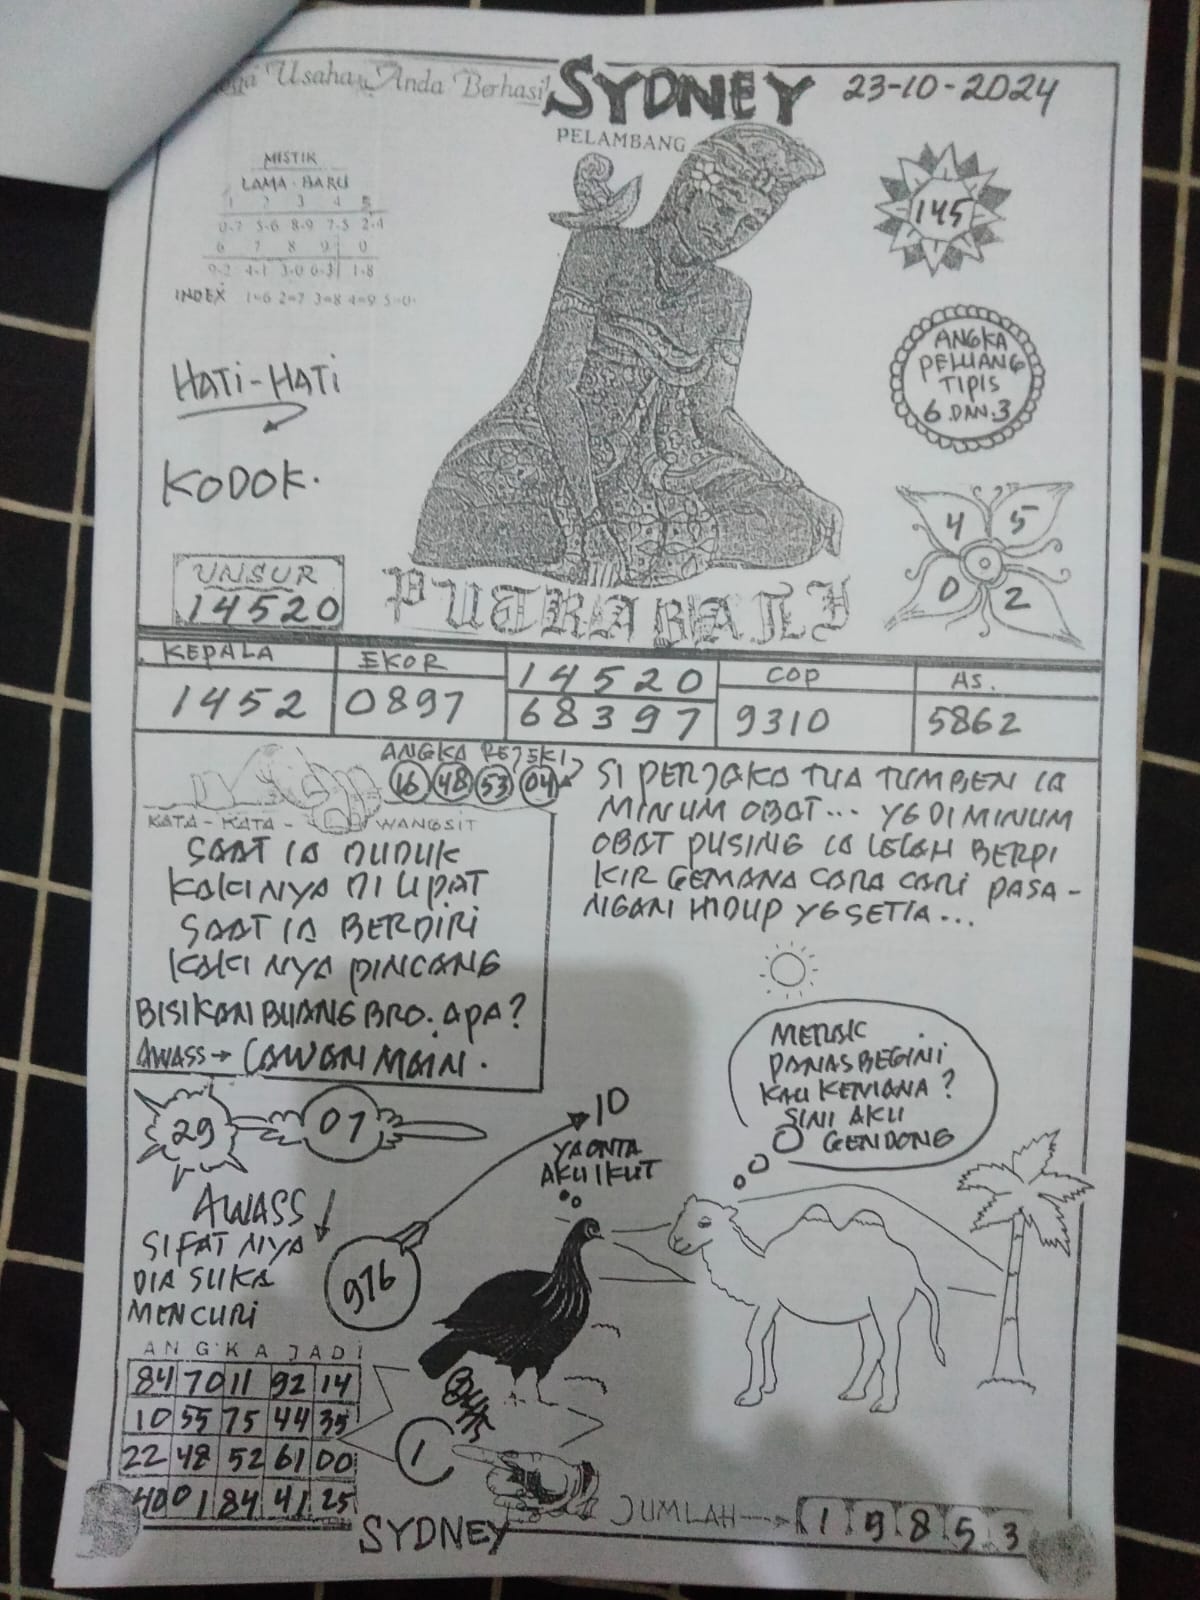 Usaha Anda Berhasil
SYDNEY
23-10-2024
PELAMBANG
MISTIK
LAMA - BARU
1 2 3 4 5
0-7 5-6 8-9 7-5 2-4
6 7 8 9 0
9-2 4-1 3-0 6-3 1-8
INDEX 1=6 2=7 3=8 4=9 5=0
145
HATI-HATI
KODOK.
ANGKA
PELUANG
TIPIS
6 DAN.3
4 5
0 2
UNSUR
14520
PUTRA BALI
KEPALA
1452
EKOR
0897
14520
68397
COP
9310
AS.
5862
ANGKA REJEKI
16 48 53 04
KATA-KATA- WANGSIT
SAAT IA DUDUK
KAKINYA DI LIPAT
SAAT IA BERDIRI
KAKI NYA PINCANG
BISIKAN BUANG BRO. APA?
AWASS→ CAWAN MAIN.
SI PERJAKA TUA TUMBEN IA
MINUM OBAT... YG DI MINUM
OBAT PUSING IA LELAH BERPI
KIR GEMANA CARA CARI PASA-
NGAN HIDUP YG SETIA...
METUSC
PANAS BEGINI
KAU KEMANA?
SINI AKU
GENDONG
29
07
10
YA ONTA
AKU IKUT
AWASS
SIFAT NYA
DIA SUKA
MENCURI
976
ANGKA JADI
84 70 11 92 14
10 55 75 44 35
22 48 52 61 00
40 01 84 41 25
1
JUMLAH → 1 9 8 5 3
SYDNEY